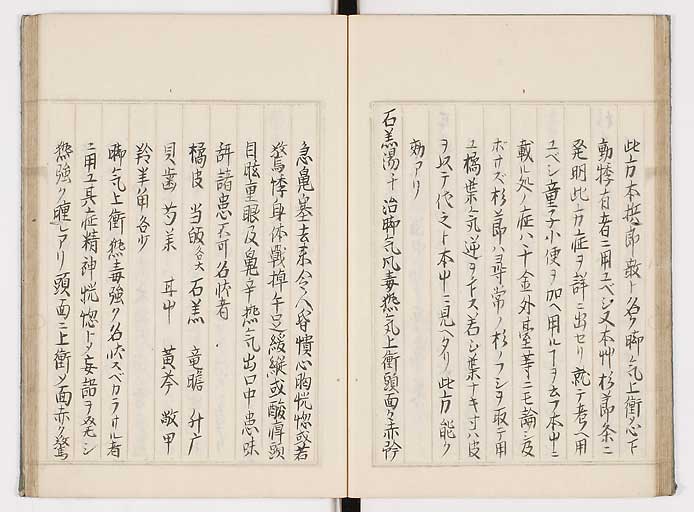 此方本ト擬節散ト名ク脚気上衝シ心下
動悸有者ニ用ユベシ又本艸杉節条ニ
発明此方症ヲ詳ニ出セリ就テ考ヘ用
ユベシ童子小便ヲ加ヘ用ルナヲ云フ本中ニ
載ル処ノ症ハ千金外臺等ニモ論シ及
ホサズ杉節ハ尋常ノ杉ノフシヲ取テ用
ユ橘葉気逆ヲ下ス若シ葉ナキ寸ハ皮
ヲ以テ代之ト本中ニ見ヘタリ此方能ク
効アリ
石羔湯千 治脚気風毒熱気上衝頭面赤矜
急鼻塞去来令人昏憒心胸恍惚或若
驚悸身体戦掉手足緩縦或酸痺頭
目眩重眼反鼻辛熱気出口中患味
諸患不可名状者
橘皮 当皈各大 石羔 竜膽 升广
貝歯 芍薬 甘中 黄芩 鼈甲
羚羊角各少
脚気上衝熱毒強ク名状スベカラサル者
ニ用ユ其症精神恍惚トシ妄語ヲ発シ
熱強ク アリ頭面ニ上衝シ面赤ク驚